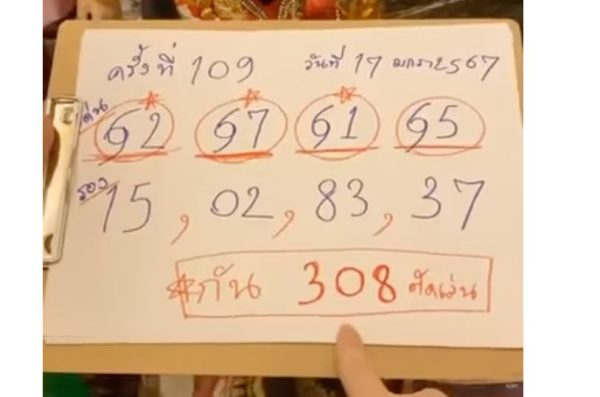 ครั้งที่ 109 วันที่ 17 มกรา 2567
เด่น 62 67 61 65
รอง 15, 02, 83, 37
กัน 308 คัดเน้น